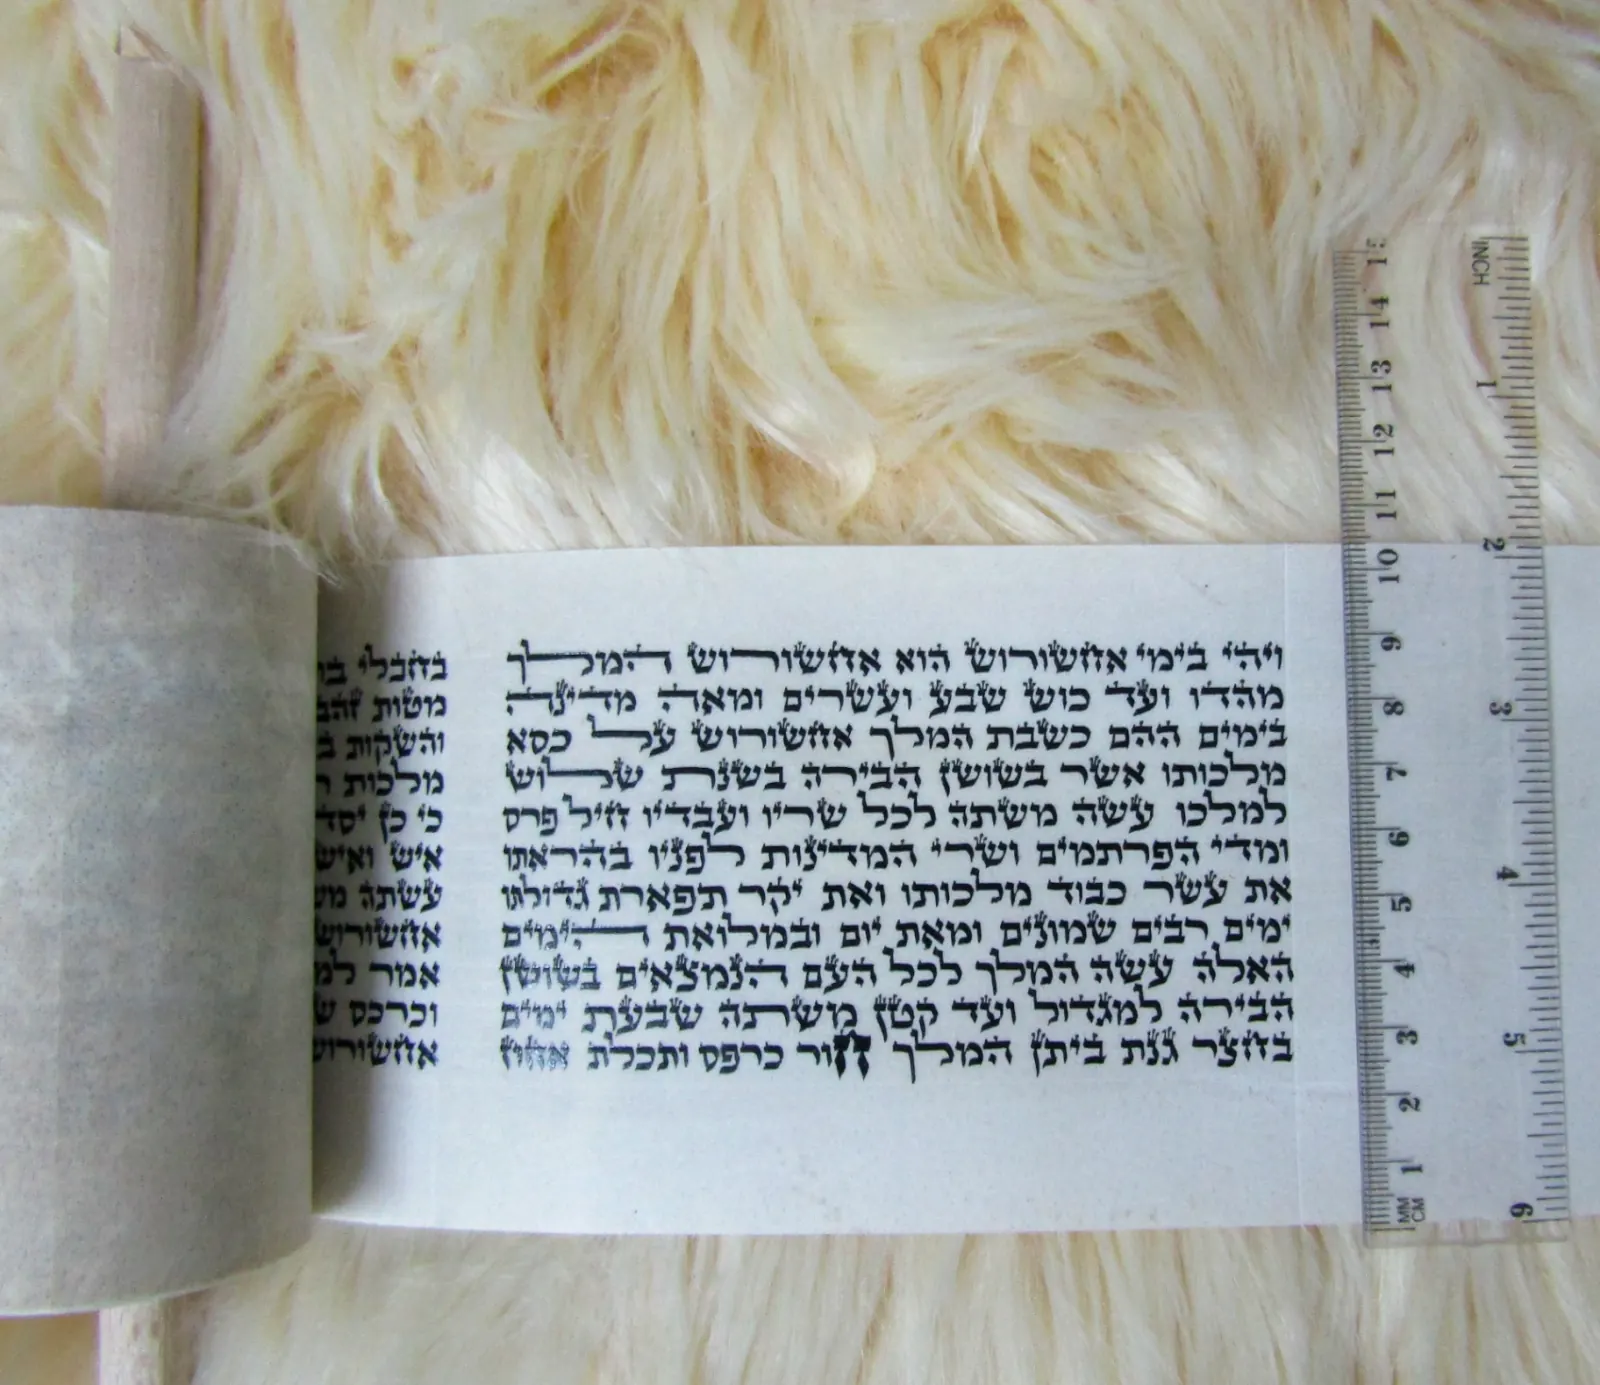 ויהי בימי אחשורוש הוא אחשורוש המלך
מהדו ועד כוש שבע ועשרים ומאה מדינה
בימים ההם כשבת המלך אחשורוש על כסא
מלכותו אשר בשושן הבירה בשנת שלוש
למלכו עשה משתה לכל שריו ועבדיו חיל פרס
ומדי הפרתמים ושרי המדינות לפניו בהראתו
את עשר כבוד מלכותו ואת יקר תפארת גדולתו
ימים רבים שמונים ומאת יום ובמלואת הימים
האלה עשה המלך לכל העם הנמצאים בשושן
הבירה למגדול ועד קטן משתה שבעת ימים
בחצר גנת ביתן המלך חור כרפס ותכלת אחוז
בחבלי
מטות זהב
והשקות
מלכות
כי כן יסד
איש ואיש
עשתה
אחשורוש
אמר
וכרכס
אחשורוש
15
14
13
12
11
10
9
8
7
6
5
4
3
2
1
MM
CM
INCH
1
2
3
4
5
6